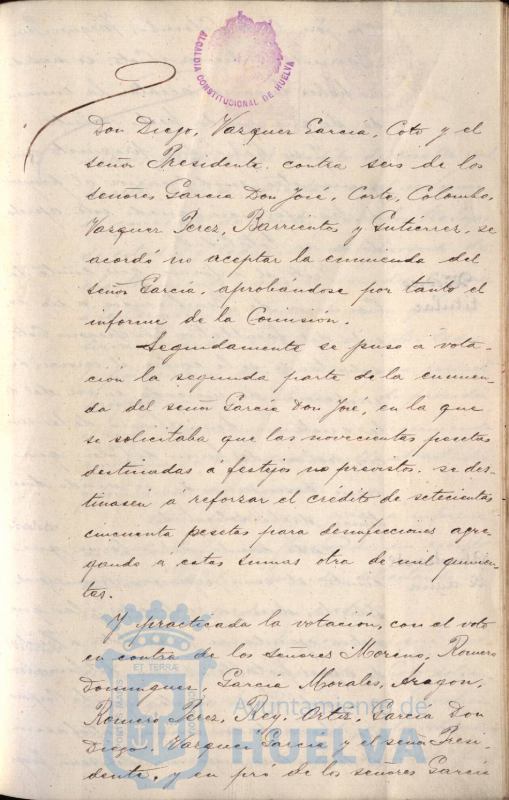 ALCALDIA CONSTITUCIONAL DE HUELVA
Don Diego, Vazquez Garcia, Coto y el
señor Presidente contra seis de los
señores Garcia Don José, Corto, Colombo,
Vazquez Perez, Barrientos y Gutierrez, se
acordó no aceptar la enmienda del
señor Garcia, aprobándose por tanto el
informe de la Comisión.
Seguidamente se puso a vota-
ción la segunda parte de la enmien-
da del señor Garcia Don José, en la que
se solicitaba que las novecientas pesetas
destinadas á festejos no previstos, se des-
tinasen á reforzar el crédito de setecientas
cincuenta pesetas para desinfecciones agre-
gando a estas sumas otra de mil quinien-
tas.
Y practicada la votación, con el voto
en contra de los señores Moreno, Romero
Dominguez, Garcia Morales, Aragon,
Romero Perez, Rey, Ortiz, Garcia Don
Diego, Vazquez Garcia y el señor Presi-
dente, y en pró de los señores Garcia
ET TERRÆ
Ayuntamiento de
HUELVA